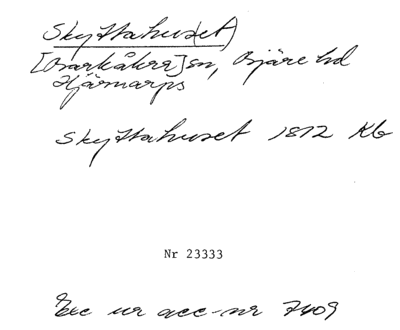 Skyttahus(et)
[Barkåkra] sn, Bjäre hd
Hjärnarps
Skyttahuset 1812 Kb
Nr 23333
Exc ur acc-nr 7409